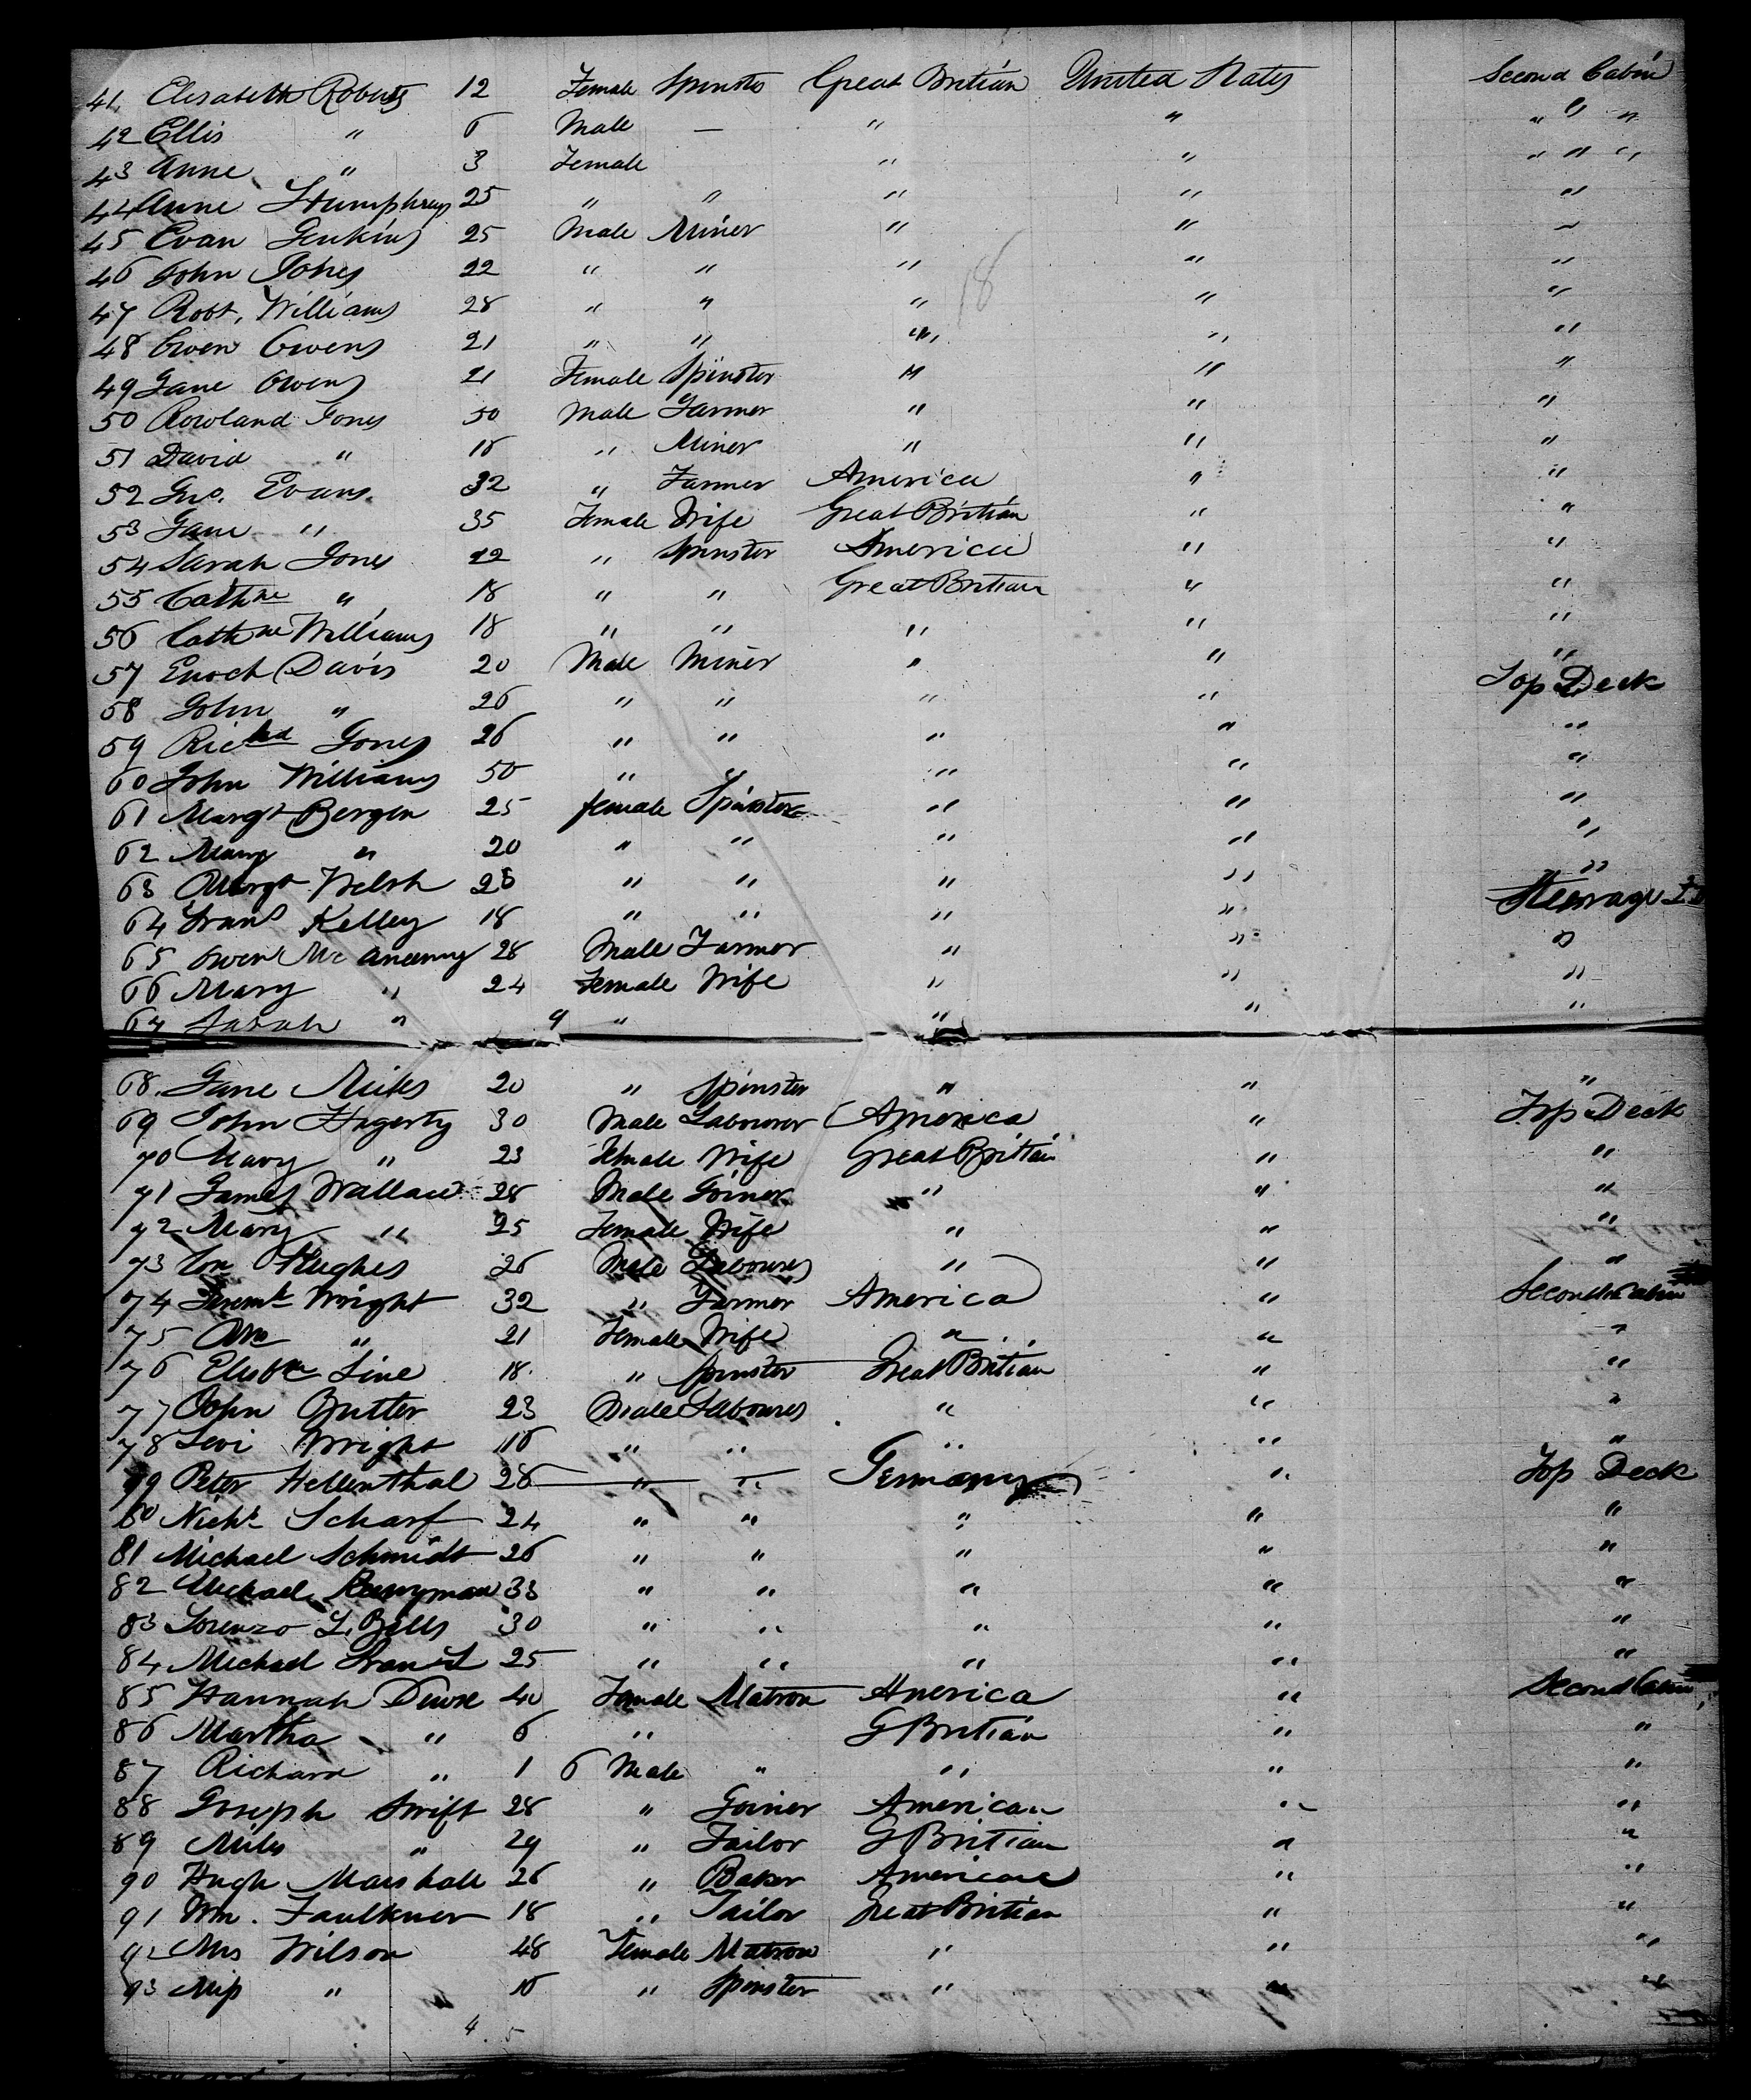 41. Elisabeth Roberts 12 Female Spinster Great Britian United States Second Cabin
42 Ellis " 6 Male — " " " " "
43 Anne " 3 Female " " " " "
44 Anne Humphreys 25 " " " " "
45 Evan Jenkins 25 Male Miner " " "
46 John Jones 22 " " " " "
47 Robt. Williams 28 " " " " "
48 Owen Owens 21 " " " " "
49 Jane Owens 21 Female Spinster " " "
50 Rowland Jones 50 Male Farmer " " "
51 David " 18 " Miner " " "
52 Jno. Evans 32 " Farmer America " "
53 Jane " 35 Female Wife Great Britian " "
54 Sarah Jones 22 " Spinster America " "
55 Cathne " 18 " " Great Britian " "
56 Cathne Williams 18 " " " " "
57 Enoch Davis 20 Male Miner " " "
58 John " 26 " " " " Top Deck
59 Richd Jones 26 " " " " "
60 John Williams 50 " " " " "
61 Margt Bergen 25 female Spinster " " "
62 Mary " 20 " " " " "
63 Margt Welsh 23 " " " " "
64 Kelley 18 " " " " Steerage
65 Owen Mc Aneenny 28 Male Farmer " " "
66 Mary " 24 Female Wife " " "
67 Sarah " 9 " " " "
68. Jane Miles 20 " Spinster " " "
69 John Hagerty 30 Male Labourer America " Top Deck
70 Mary " 23 Female Wife Great Brittain " "
71 James Wallace 28 Male Joiner " " "
72 Mary " 25 Female Wife " " "
73 Hughes 26 Male Labourer " " "
74 Wright 32 " Farmer America " Second Cabin
75 Ann " 21 Female Wife " " "
76 Line 18. " Spinster Great Britian " "
77 John Butter 23 Male Labourer " " "
78 Levi Wright 16 " " " " "
79 Peter Hellenthal 28 " " Germany " Top Deck
80 Scharf 24 " " " " "
81 Michael Schmidt 26 " " " " "
82 Michael 33 " " " " "
83 Lorenzo L. Bills 30 " " " " "
84 Michael 25 " " " " "
85 Hannah 40 Female Matron America " Second Cabin
86 Martha " 6 " G Britian " "
87 Richard " 1 6 Male " " " "
88 Joseph Swift 28 " Joiner American " "
89 Miles " 29 " Tailor G Britian " "
90 Hugh Marshall 26 " Baker American " "
91 Wm. Faulkner 18 " Tailor Great Britian " "
92 Mrs Wilson 48 Female Matron " " "
93 Miss " 18 " Spinster " " "